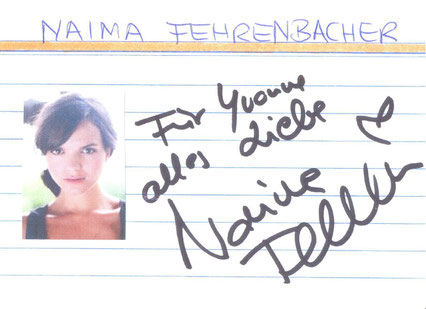 NAIMA FEHRENBACHER
Für Yvonne
alles Liebe
Naima
Fehrenbacher